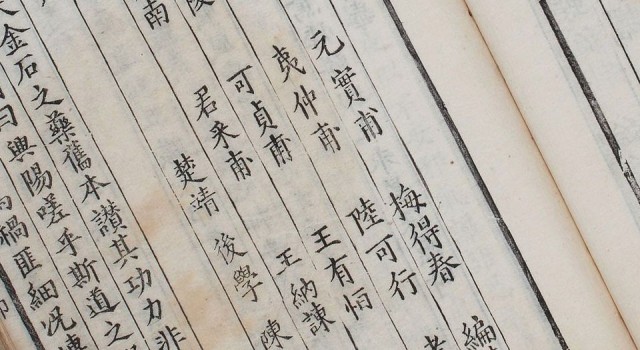 元實甫 梅得春 編
夷仲甫 陸可行
可貞甫 王有
南 君采甫 王納諫
楚靖 後學 陳
金石之藥舊本讚其功力非
曰興陽嗟乎斯道之
禍匪細況